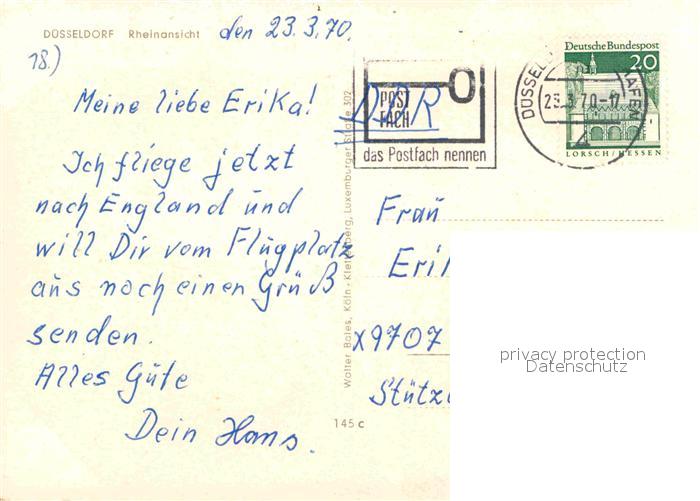 DÜSSELDORF Rheinansicht
den 23.3.70.
18.)
Meine liebe Erika!
Ich fliege jetzt
nach England und
will Dir vom Flugplatz
aus noch einen Gruß
senden.
Alles Gute
Dein Hans.
145 c
Walter Baies, Köln - Klettenberg, Luxemburger Straße 302
POST
FACH
das Postfach nennen
DDR
DÜSSEL HAFEN
23.3.70.-17
Deutsche Bundespost
20
LORSCH/HESSEN
Frau
Eri
X9707
Stütz
privacy protection
Datenschutz